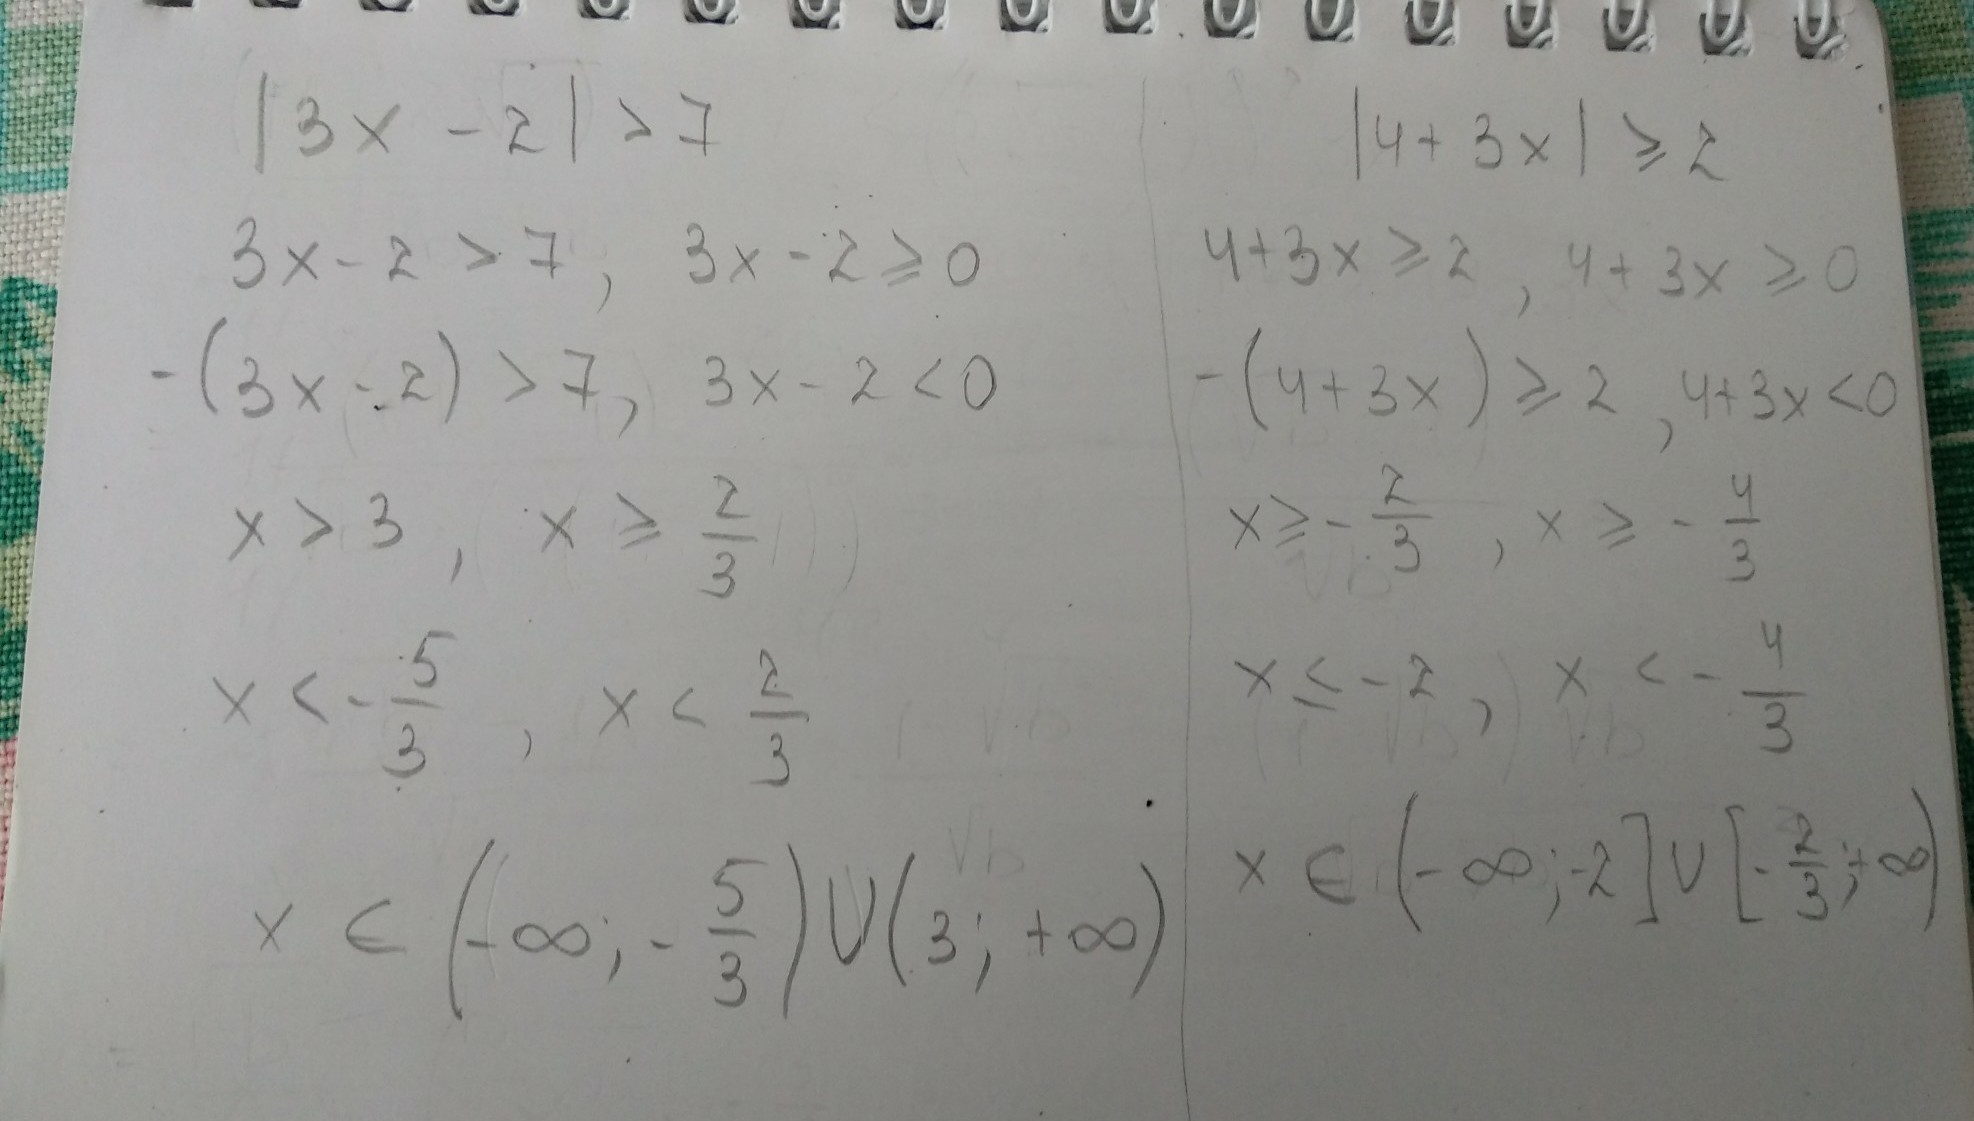 |3x - 2| > 7
3x - 2 > 7, 3x - 2 ⩾ 0
-(3x - 2) > 7, 3x - 2 < 0
x > 3, x ⩾ 2/3
x < -5/3, x < 2/3
x ∈ (-∞; -5/3) ∪ (3; +∞)
|4 + 3x| ⩾ 2
4 + 3x ⩾ 2, 4 + 3x ⩾ 0
-(4 + 3x) ⩾ 2, 4 + 3x < 0
x ⩾ -2/3, x ⩾ -4/3
x ⩽ -2, x < -4/3
x ∈ (-∞; -2] ∪ [-2/3; +∞)